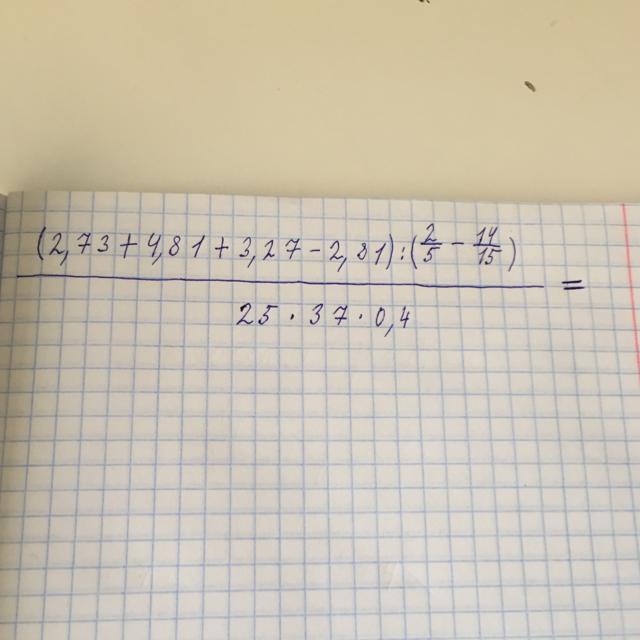 (2,73 + 4,81 + 3,27 - 2,81) : (2/5 - 14/15)
25 · 37 · 0,4 =